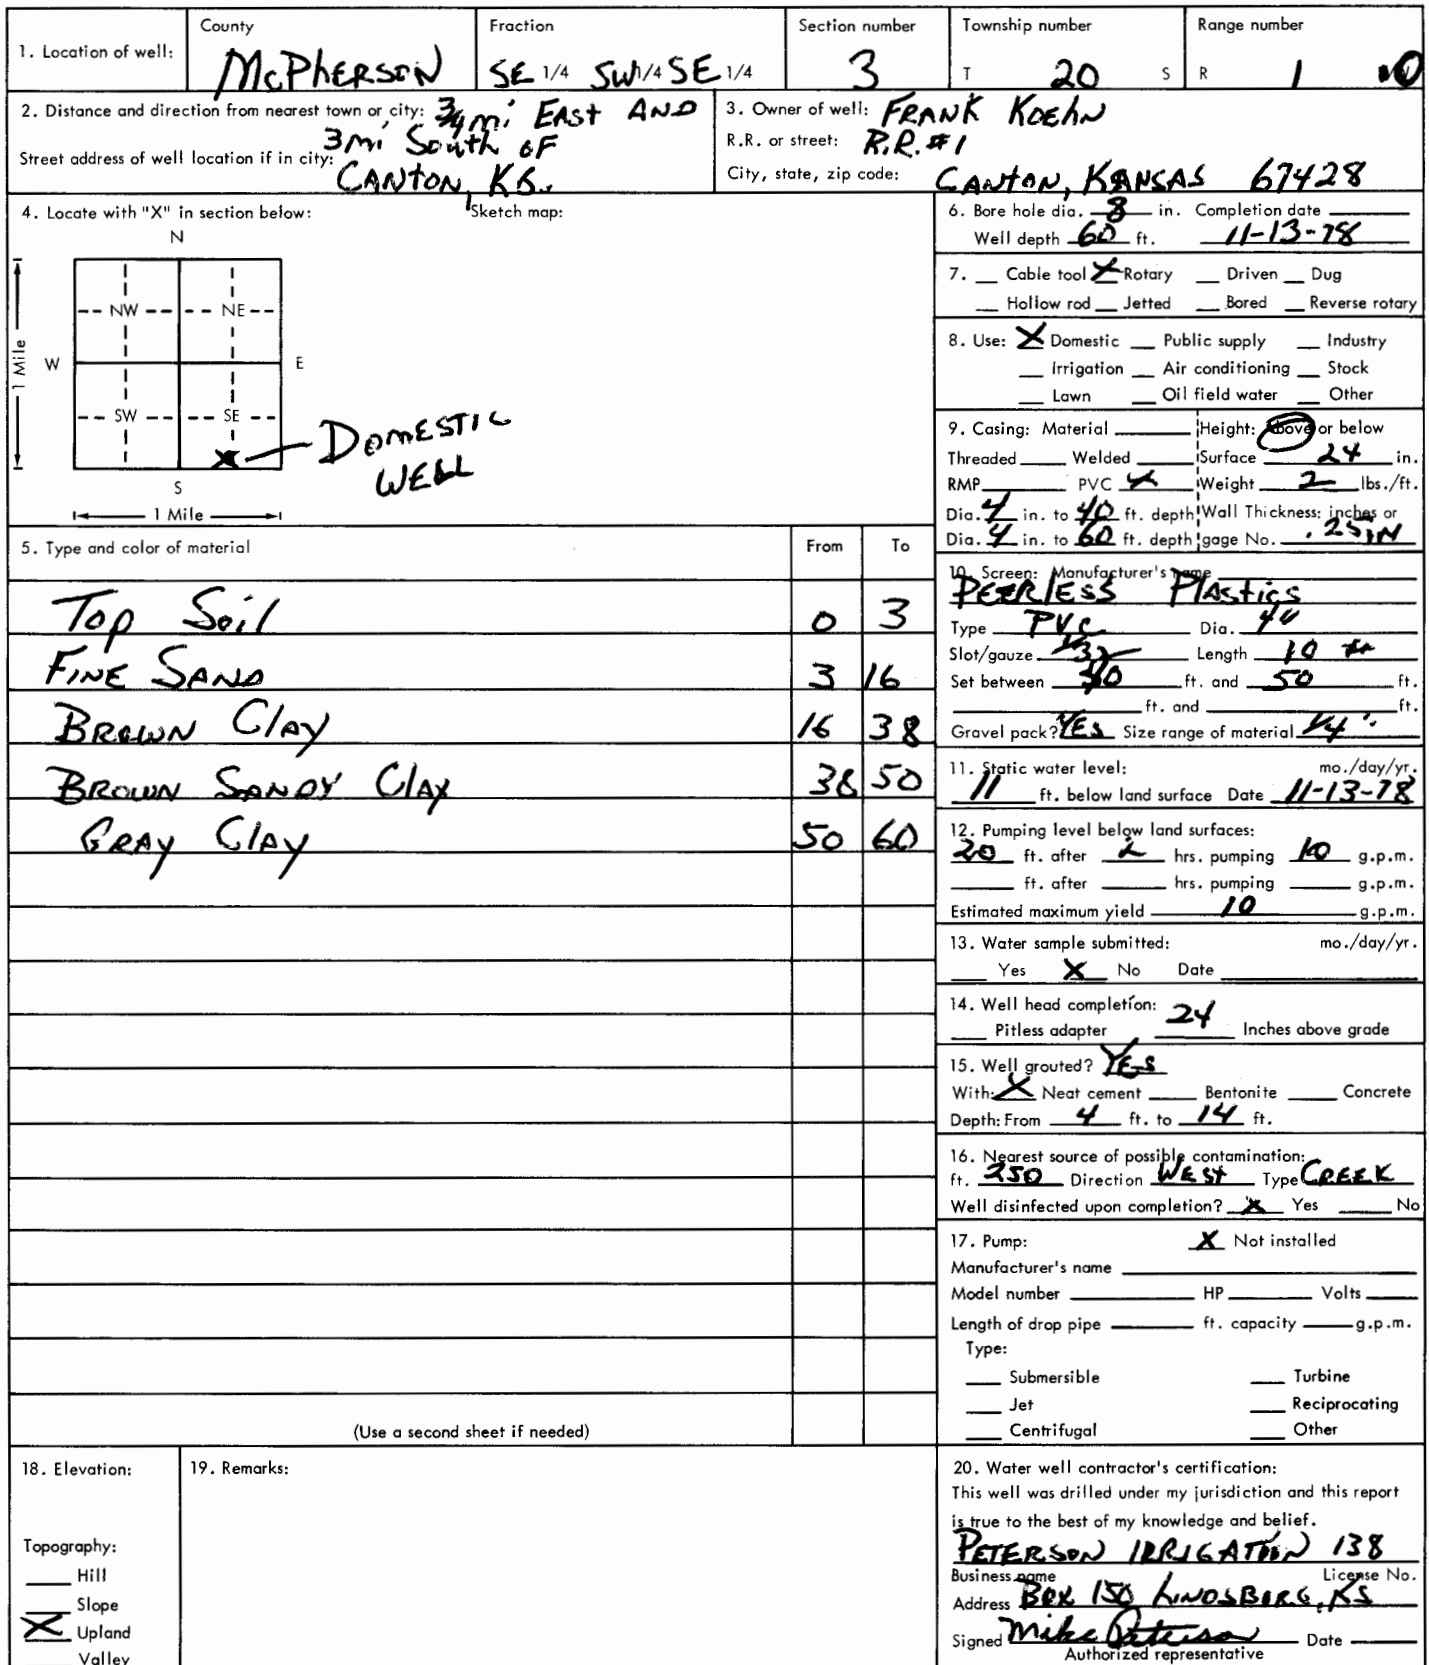 County Fraction Section number Township number Range number
1. Location of well: McPHERSON SE 1/4 SW 1/4 SE 1/4 3 T 20 S R 1
2. Distance and direction from nearest town or city: 3/4 mi EAST AND
3 mi South OF
Street address of well location if in city:
CANTON, KS.
3. Owner of well: FRANK KOEHN
R.R. or street: R.R. #1
City, state, zip code: CANTON, KANSAS 67428
4. Locate with "X" in section below: Sketch map:
N
NW NE
W E
1 Mile
SW SE
X DOMESTIC
WELL
S
1 Mile
5. Type and color of material From To
Top Soil 0 3
FINE SAND 3 16
BROWN Clay 16 38
BROWN SANDY Clay 38 50
GRAY Clay 50 60
(Use a second sheet if needed)
6. Bore hole dia. 8 in. Completion date
Well depth 60 ft. 11-13-78
7. Cable tool X Rotary Driven Dug
Hollow rod Jetted Bored Reverse rotary
8. Use: X Domestic Public supply Industry
Irrigation Air conditioning Stock
Lawn Oil field water Other
9. Casing: Material Height: Above or below
Threaded Welded Surface 24 in.
RMP PVC X Weight 2 lbs./ft.
Dia. 4 in. to 40 ft. depth Wall Thickness: inches or
Dia. 4 in. to 60 ft. depth gage No. .25 IN
10. Screen: Manufacturer's name
PEERLESS Plastics
Type PVC Dia. 4"
Slot/gauze 1/32 Length 10
Set between ft. and 50 ft.
ft. and ft.
Gravel pack? YES Size range of material 1/4"
11. Static water level: mo./day/yr.
11 ft. below land surface Date 11-13-78
12. Pumping level below land surfaces:
20 ft. after 2 hrs. pumping 10 g.p.m.
ft. after hrs. pumping g.p.m.
Estimated maximum yield 10 g.p.m.
13. Water sample submitted: mo./day/yr.
Yes X No Date
14. Well head completion:
Pitless adapter 24 Inches above grade
15. Well grouted? YES
With: X Neat cement Bentonite Concrete
Depth: From 4 ft. to 14 ft.
16. Nearest source of possible contamination:
ft. 250 Direction WEST Type CREEK
Well disinfected upon completion? X Yes No
17. Pump: X Not installed
Manufacturer's name
Model number HP Volts
Length of drop pipe ft. capacity g.p.m.
Type:
Submersible Turbine
Jet Reciprocating
Centrifugal Other
18. Elevation:
Topography:
Hill
Slope
X Upland
Valley
19. Remarks:
20. Water well contractor's certification:
This well was drilled under my jurisdiction and this report
is true to the best of my knowledge and belief.
PETERSON IRRIGATION 138
Business name License No.
Address BOX 150 LINDSBORG, KS
Signed Mike Peterson Date
Authorized representative